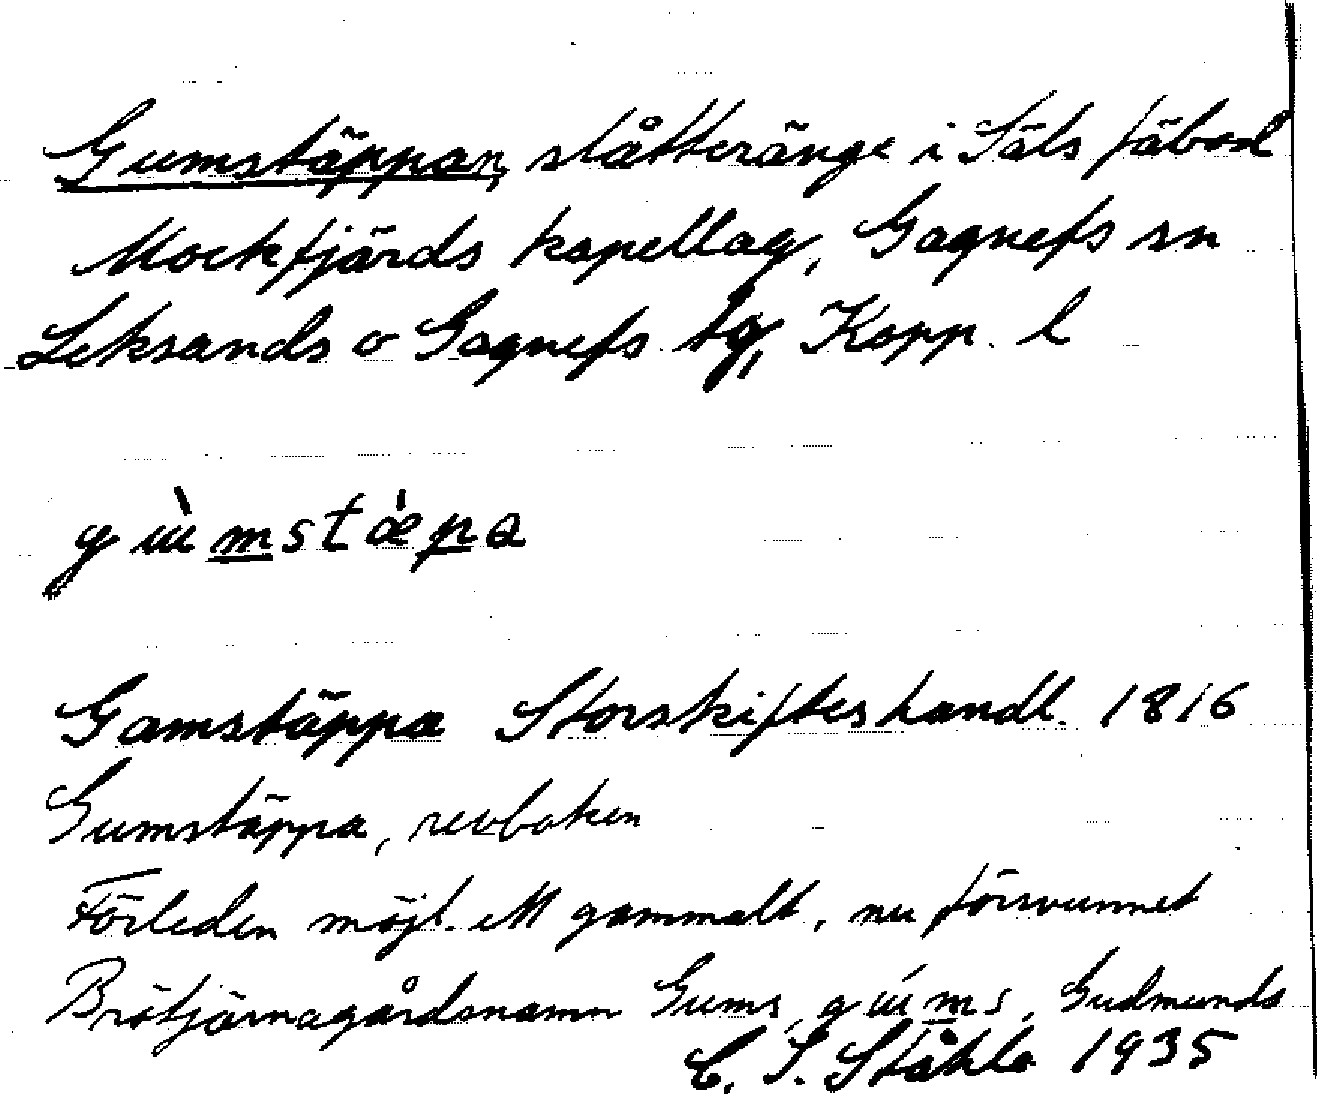 Gumstäppan, slåtteränge i Säls fäbod
Mockfjärds kapellag, Gagnefs sn
Leksands o Gagnefs tg, Kopp. l
gùmstæ̀pa
Gamstäppa Storskifteshandl. 1816
Gumstäppa, revboken
Förleden möjl. ett gammalt, nu försvunnet
Brötjärnagårdsnamn Gums, gúms, Gudmunds
C. I. Ståhle 1935